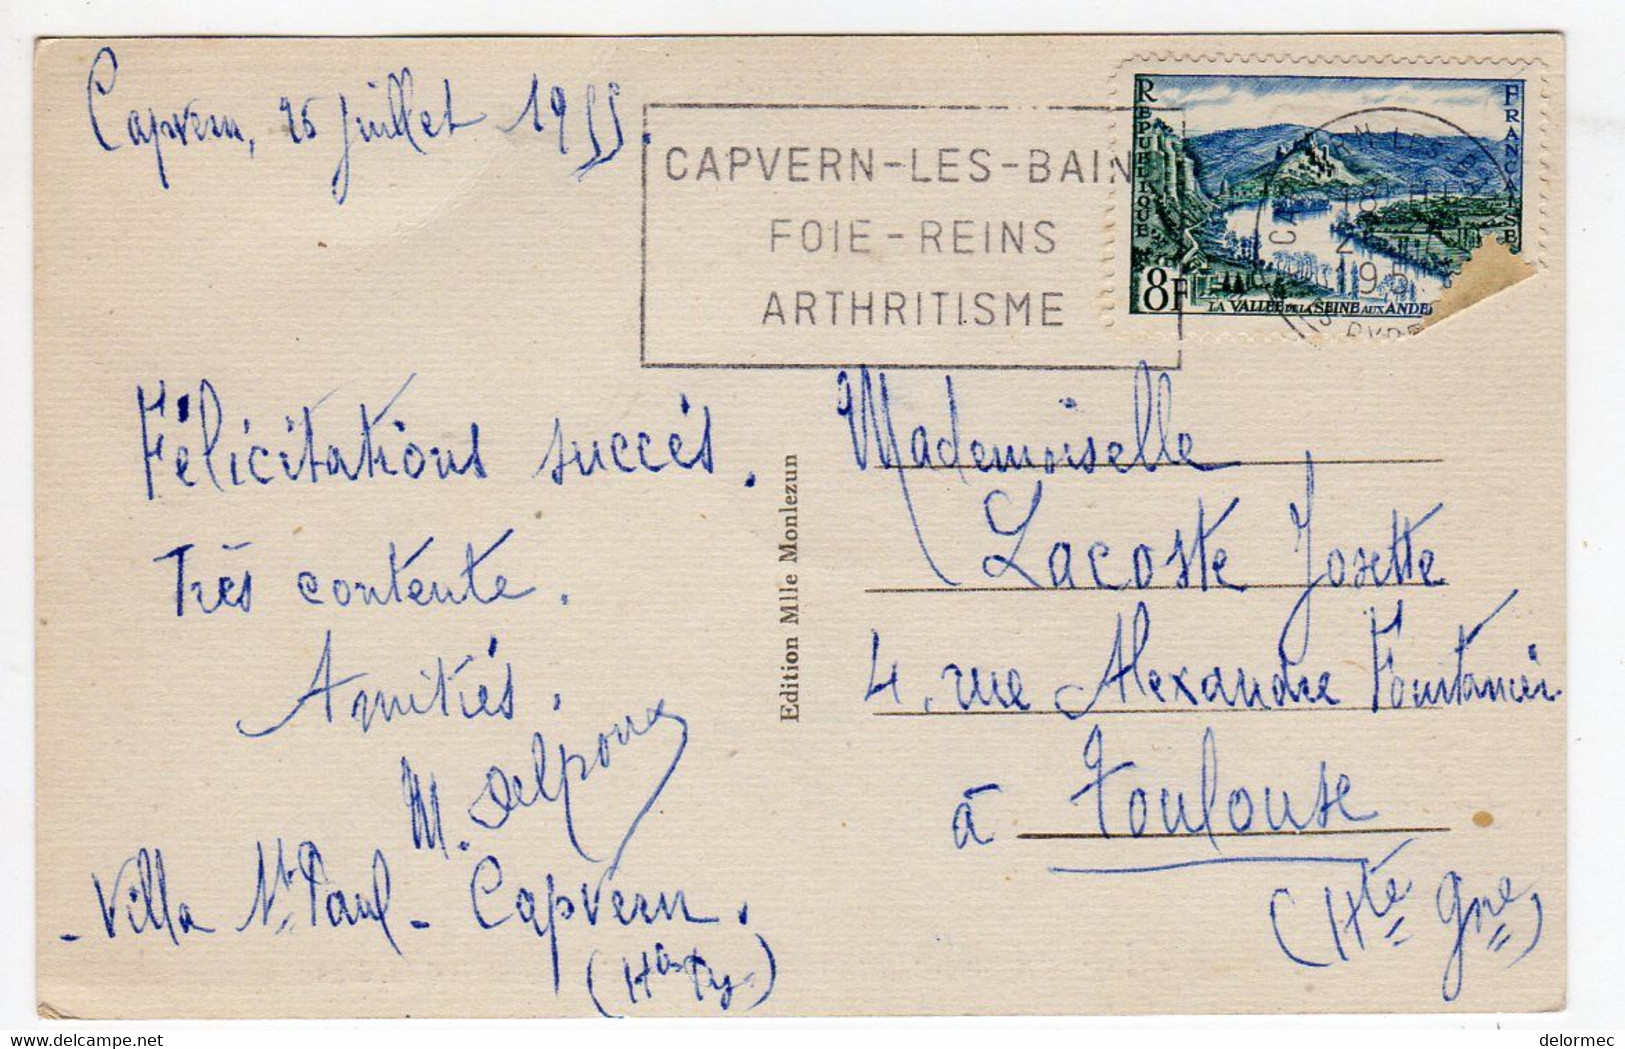 Capvern, 26 Juillet 1955.
CAPVERN-LES-BAIN
FOIE - REINS
ARTHRITISME
REPUBLIQUE
FRANÇAISE
8F
LA VALLÉE DE LA SEINE AUX ANDE
Félicitations succès.
Très contente.
Amitiés.
M. Delpoux
- Villa St Paul - Capvern.
(Htes Py.)
Edition Mlle Monlezun
Mademoiselle
Lacoste Josette
4, rue Alexandre Fourtanier
à Toulouse
(Hte Gne)
delcampe.net
delormec